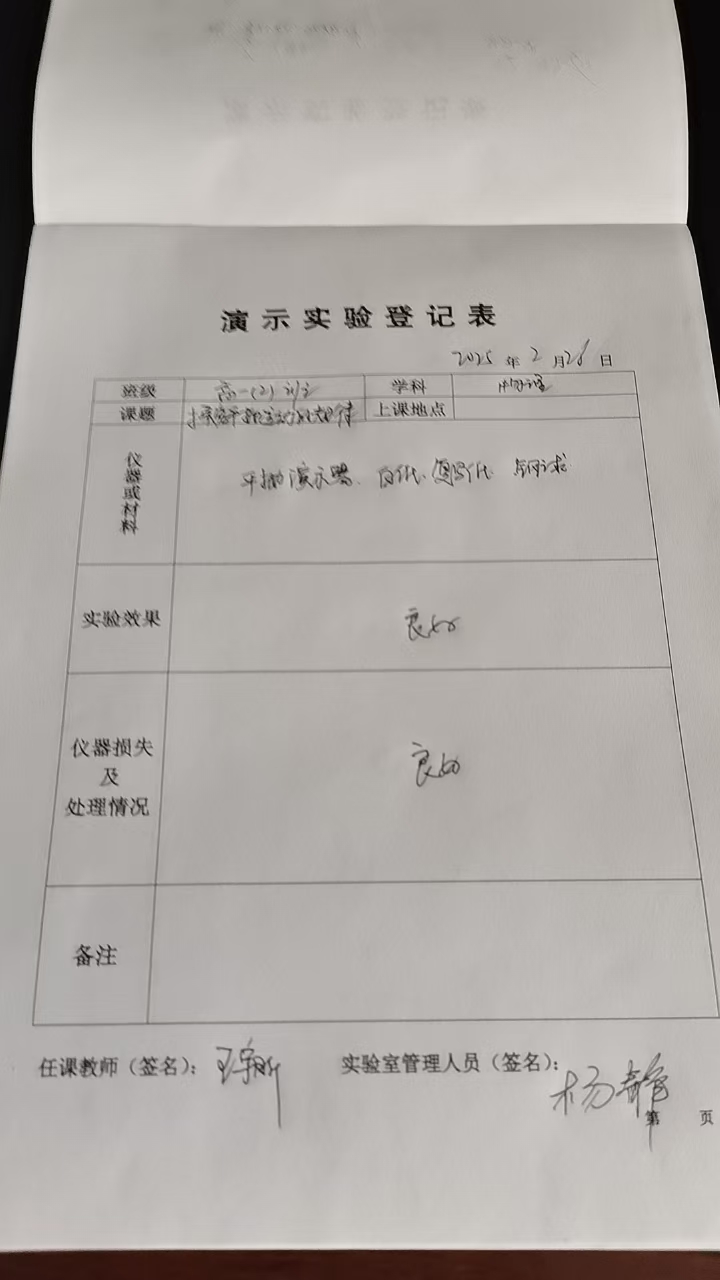 演示实验登记表
2025 年 2 月 26 日
班级 高一(2)班 学科 物理
课题 探究平抛运动的规律 上课地点
仪器或材料 平抛演示器、白纸、复写纸、钢球
实验效果 良好
仪器损失
及
处理情况 良好
备注
任课教师（签名）： 王 实验室管理人员（签名）： 杨静
第 页